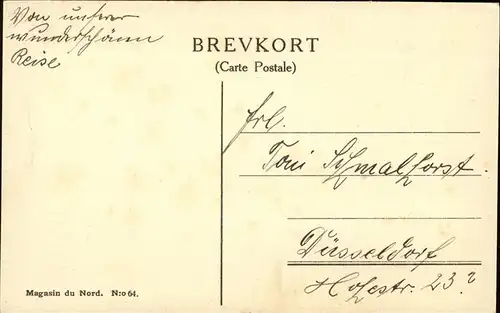 Von unserer
wunderschönen
Reise
BREVKORT
(Carte Postale)
Frl.
Toni Schmalhorst
Düsseldorf
23?
Magasin du Nord. N:o 64.